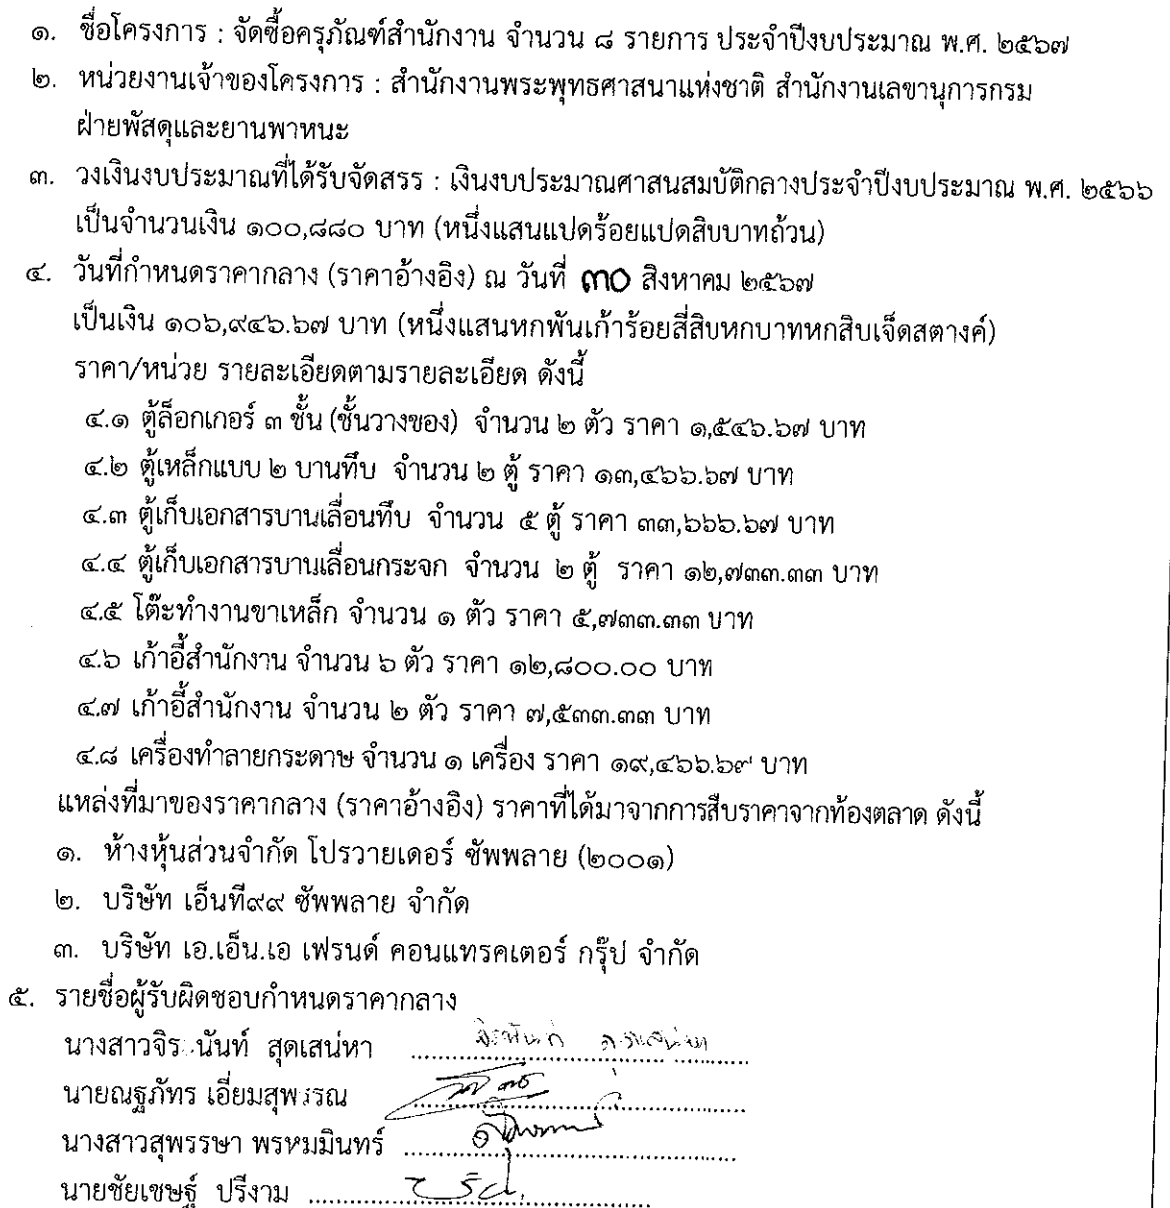 ๑. ชื่อโครงการ : จัดซื้อครุภัณฑ์สำนักงาน จำนวน ๘ รายการ ประจำปีงบประมาณ พ.ศ. ๒๕๖๗
๒. หน่วยงานเจ้าของโครงการ : สำนักงานพระพุทธศาสนาแห่งชาติ สำนักงานเลขานุการกรม
ฝ่ายพัสดุและยานพาหนะ
๓. วงเงินงบประมาณที่ได้รับจัดสรร : เงินงบประมาณศาสนสมบัติกลางประจำปีงบประมาณ พ.ศ. ๒๕๖๖
เป็นจำนวนเงิน ๑๐๐,๘๘๐ บาท (หนึ่งแสนแปดร้อยแปดสิบบาทถ้วน)
๔. วันที่กำหนดราคากลาง (ราคาอ้างอิง) ณ วันที่ ๓๐ สิงหาคม ๒๕๖๗
เป็นเงิน ๑๐๖,๙๔๖.๖๗ บาท (หนึ่งแสนหกพันเก้าร้อยสี่สิบหกบาทหกสิบเจ็ดสตางค์)
ราคา/หน่วย รายละเอียดตามรายละเอียด ดังนี้
๔.๑ ตู้ล็อกเกอร์ ๓ ชั้น (ชั้นวางของ) จำนวน ๒ ตัว ราคา ๑,๕๔๖.๖๗ บาท
๔.๒ ตู้เหล็กแบบ ๒ บานทึบ จำนวน ๒ ตู้ ราคา ๑๓,๔๖๖.๖๗ บาท
๔.๓ ตู้เก็บเอกสารบานเลื่อนทึบ จำนวน ๕ ตู้ ราคา ๓๓,๖๖๖.๖๗ บาท
๔.๔ ตู้เก็บเอกสารบานเลื่อนกระจก จำนวน ๒ ตู้ ราคา ๑๒,๗๓๓.๓๓ บาท
๔.๕ โต๊ะทำงานขาเหล็ก จำนวน ๑ ตัว ราคา ๕,๗๓๓.๓๓ บาท
๔.๖ เก้าอี้สำนักงาน จำนวน ๖ ตัว ราคา ๑๒,๘๐๐.๐๐ บาท
๔.๗ เก้าอี้สำนักงาน จำนวน ๒ ตัว ราคา ๗,๕๓๓.๓๓ บาท
๔.๘ เครื่องทำลายกระดาษ จำนวน ๑ เครื่อง ราคา ๑๙,๔๖๖.๖๙ บาท
แหล่งที่มาของราคากลาง (ราคาอ้างอิง) ราคาที่ได้มาจากการสืบราคาจากท้องตลาด ดังนี้
๑. ห้างหุ้นส่วนจำกัด โปรวายเดอร์ ซัพพลาย (๒๐๐๑)
๒. บริษัท เอ็นที๙๙ ซัพพลาย จำกัด
๓. บริษัท เอ.เอ็น.เอ เฟรนด์ คอนแทรคเตอร์ กรุ๊ป จำกัด
๕. รายชื่อผู้รับผิดชอบกำหนดราคากลาง
นางสาวจิระนันท์ สุดเสน่หา
นายณฐภัทร เอี่ยมสุพรรณ
นางสาวสุพรรษา พรหมมินทร์
นายชัยเชษฐ์ ปรีงาม